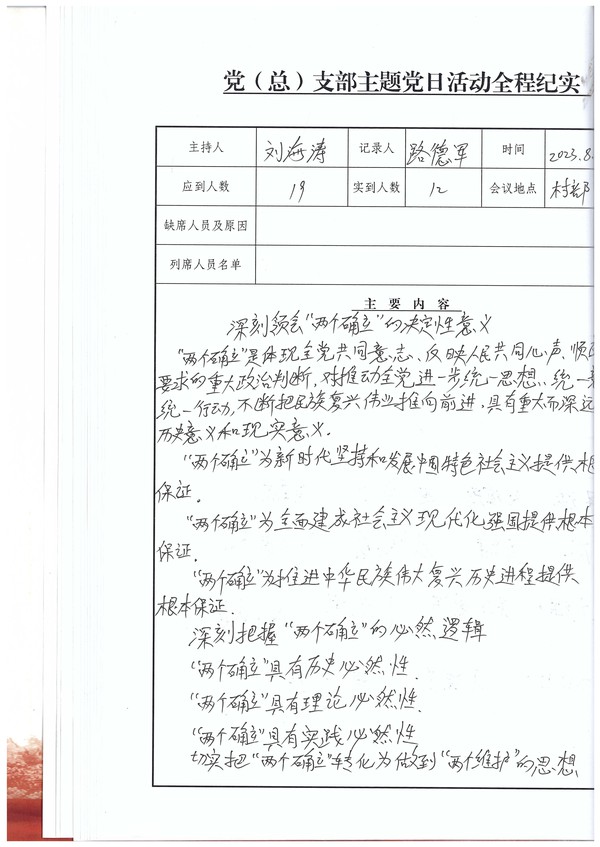 党（总）支部主题党日活动全程纪实
主持人 刘海涛 记录人 路德军 时间 2023.8.
应到人数 19 实到人数 12 会议地点 村部
缺席人员及原因
列席人员名单
主要内容
深刻领会“两个确立”的决定性意义
“两个确立”是体现全党共同意志、反映人民共同心声、顺应
要求的重大政治判断，对推动全党进一步统一思想、统一
统一行动，不断把民族复兴伟业推向前进，具有重大而深远
历史意义和现实意义．
“两个确立”为新时代坚持和发展中国特色社会主义提供根
保证．
“两个确立”为全面建成社会主义现代化强国提供根本
保证．
“两个确立”为推进中华民族伟大复兴历史进程提供
根本保证．
深刻把握“两个确立”的必然逻辑
“两个确立”具有历史必然性．
“两个确立”具有理论必然性．
“两个确立”具有实践必然性
切实把“两个确立”转化为做到“两个维护”的思想